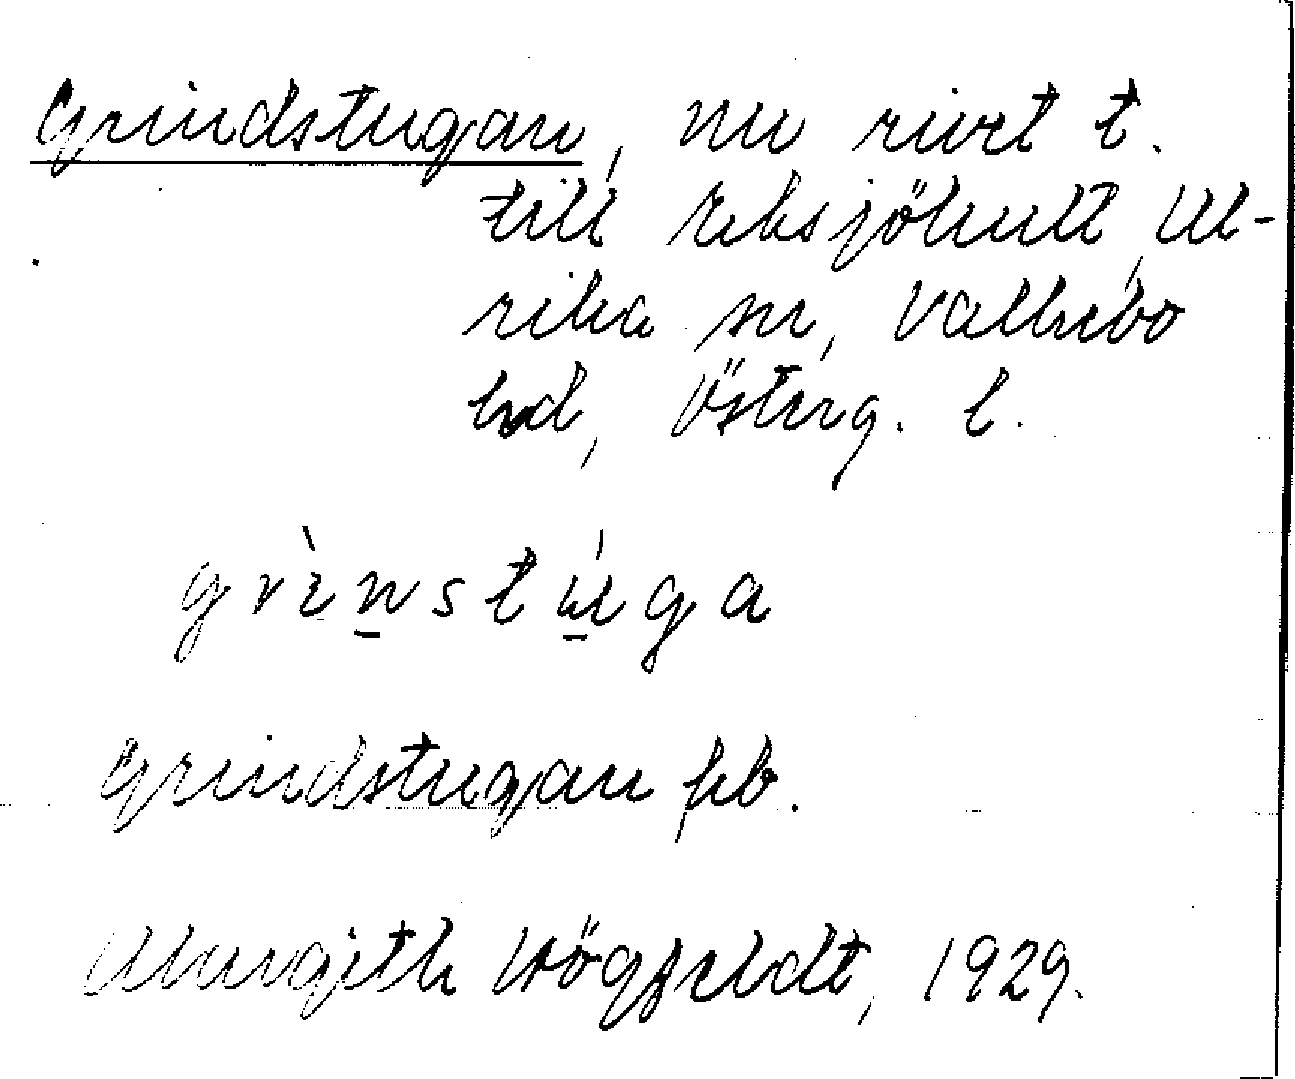 Grindstugan, nu rivet t.
till Eksjöhult, Ul-
rika sn, Valkebo
hd, Österg. l.
grı̀n̲stú̲ga
Grindstugan kb.
Margith Högfeldt, 1929.